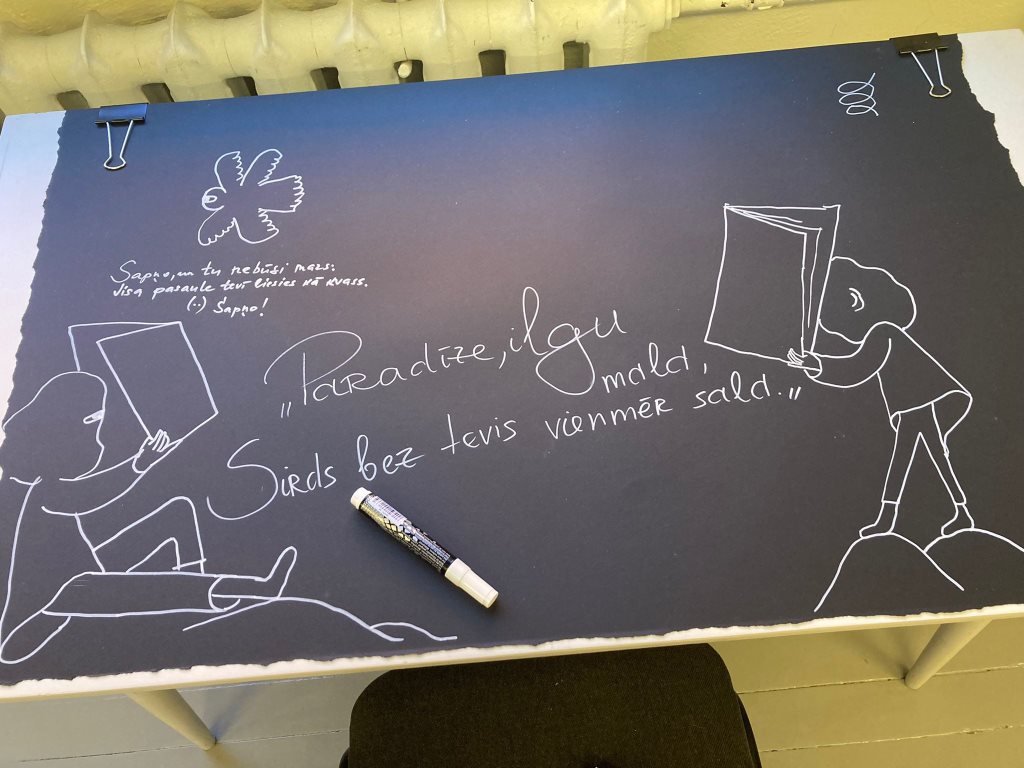 Sapņo, un tu nebūsi mazs:
Visa pasaule tevī liesies kā kvass.
(.) Sapņo!
„Paradīze, ilgu
mald,
Sirds bez tevis vienmēr sald."